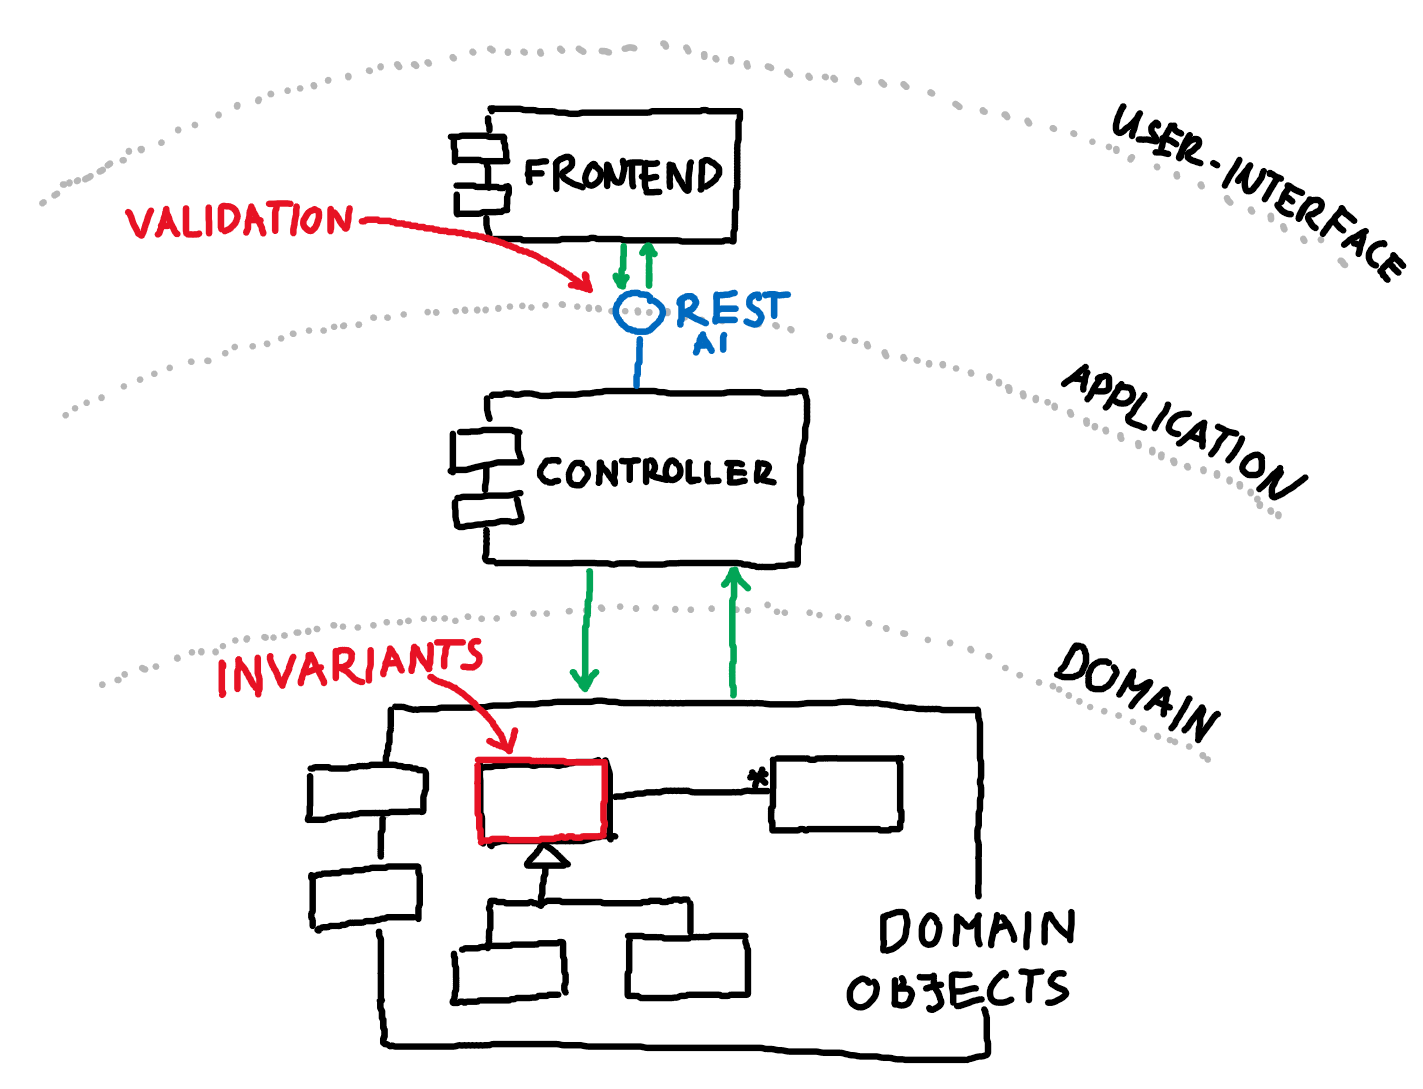 USER-INTERFACE
FRONTEND
VALIDATION
REST
AI
APPLICATION
CONTROLLER
INVARIANTS
DOMAIN
*
DOMAIN
OBJECTS